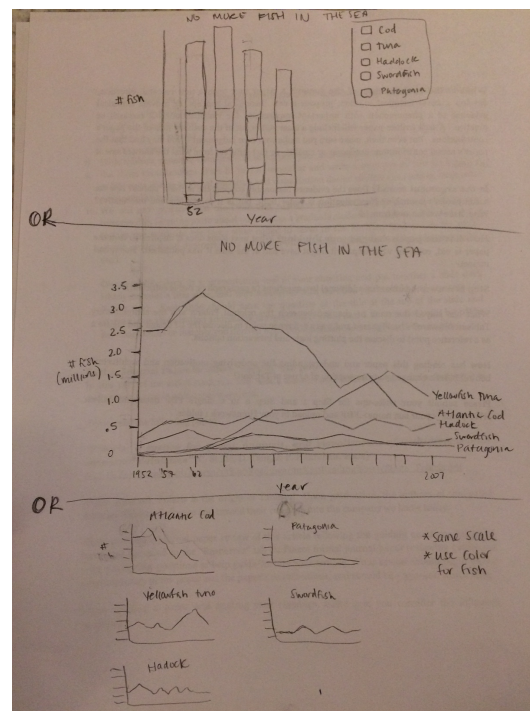 NO MORE FISH IN THE SEA
Cod
Tuna
Haddock
Swordfish
Patagonia
# Fish
52
Year
OR
NO MORE FISH IN THE SEA
3.5
3.0
2.5
2.0
1.5
1.0
.5
0
# Fish
(millions)
Yellowfish Tuna
Atlantic Cod
Hadock
Swordfish
Patagonia
1952 '57 '62 2007
year
OR
OR
Atlantic Cod
#
Patagonia
* Same scale
* use color
for fish
Yellowfish tuna
Swordfish
Hadock